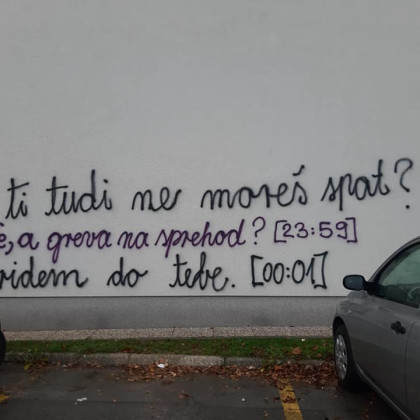 ti tudi ne moreš spat?
, a greva na sprehod? [23:59]
do tebe. [00:01]